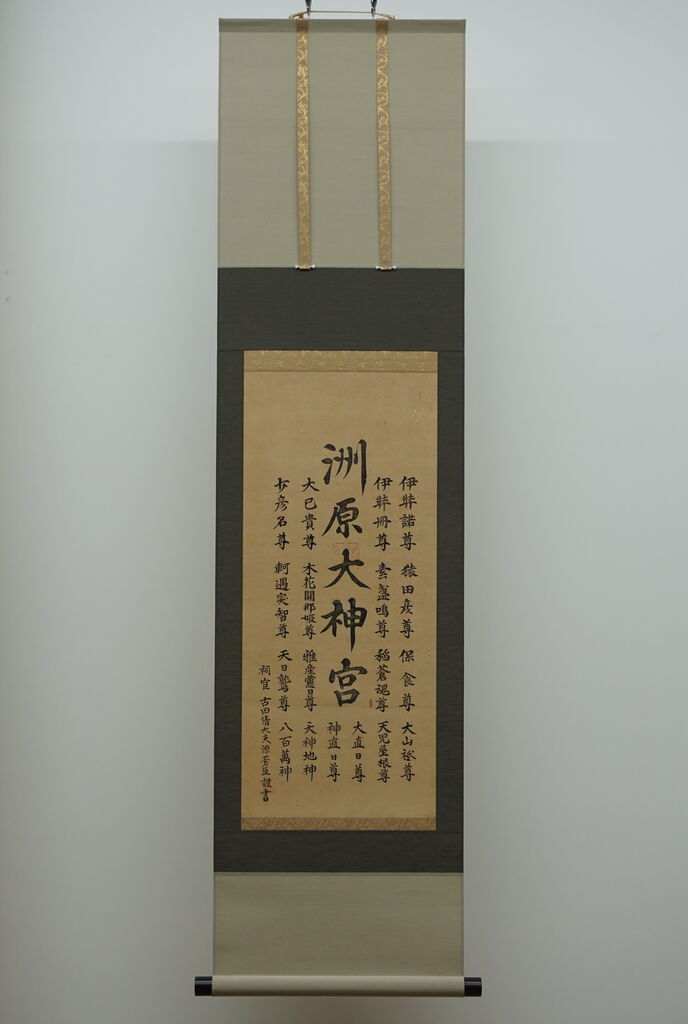 伊弉諾尊 猿田彦尊 保食尊 大山祇尊
伊弉冊尊 素盞嗚尊 稲蒼魂尊 天児屋根尊
洲原大神宮
大直日尊
神直日尊
大己貴尊 木花開耶姫尊 稚産靈日尊 天神地神
少彦名尊 軻遇突智尊 天日鷲尊 八百萬神
祠官 古田清大夫源芳臣謹書